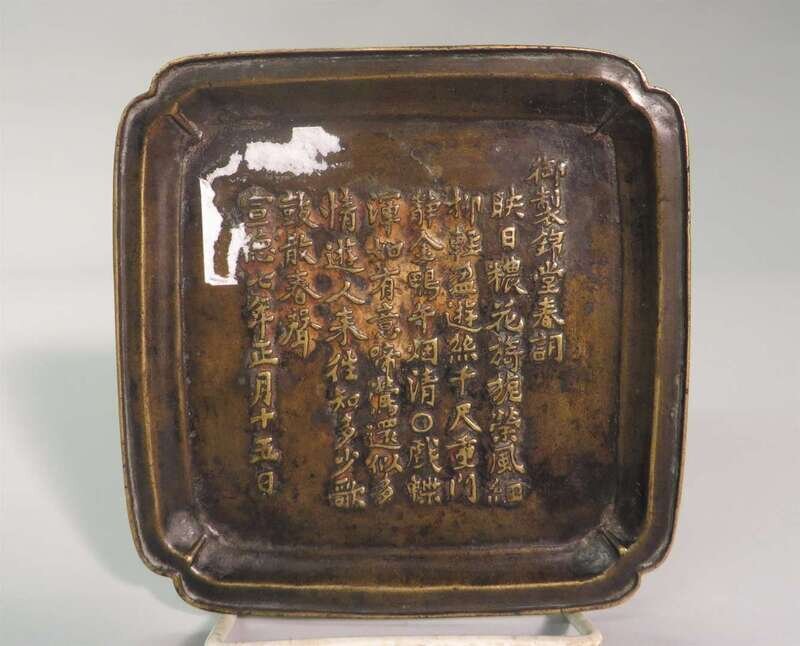 御製錦堂春詞
映日穠花旖旎縈風細
柳輕盈遊絲千尺重門
靜金鴨午烟清○戲蝶
渾如有意啼鶯還似多
情遊人来往知多少歌
鼓散春聲
宣德七年正月十五日